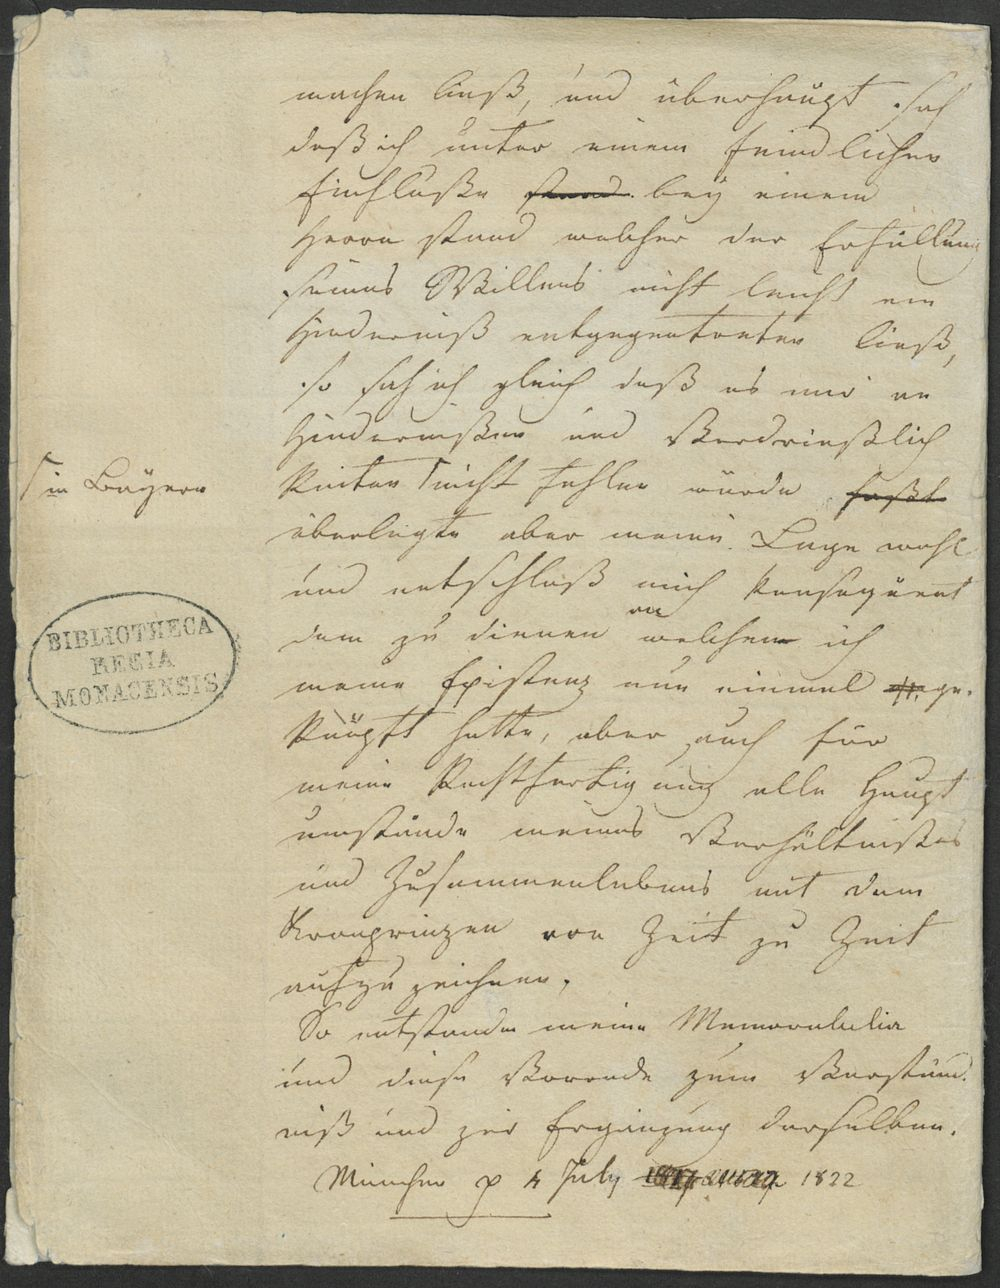 machen ließ, und überhaupt sah
daß ich unter einem feindlichen
Einfluße stand bey einem
Herrn stand welcher der Erfüllung
seines Willens nicht leicht ein
Hinderniß entgegentreten ließ,
so sah ich gleich daß es mir an
Hindernißen und Verdrießlich
Keiten ⌈ nicht fehlen würde faßt
⌈ in Bayern
überlegte aber meine Lage wohl
und entschloß mich konsequent
dem zu dienen welchem ich
an
meine Existenz nun einmal ge-
knüpft hatte, aber auch für
meine Rechtfertigung alle Haupt
umstände meines Verhältnißes
und Zusammenlebens mit dem
Kronprinzen von Zeit zu Zeit
aufzuzeichnen.
So entstanden meine Memorabilia
und diese Vorrede zum Verständ-
niß und zur Ergänzung derselben.
München p 4 July 1822
BIBLIOTHECA
REGIA
MONACENSIS